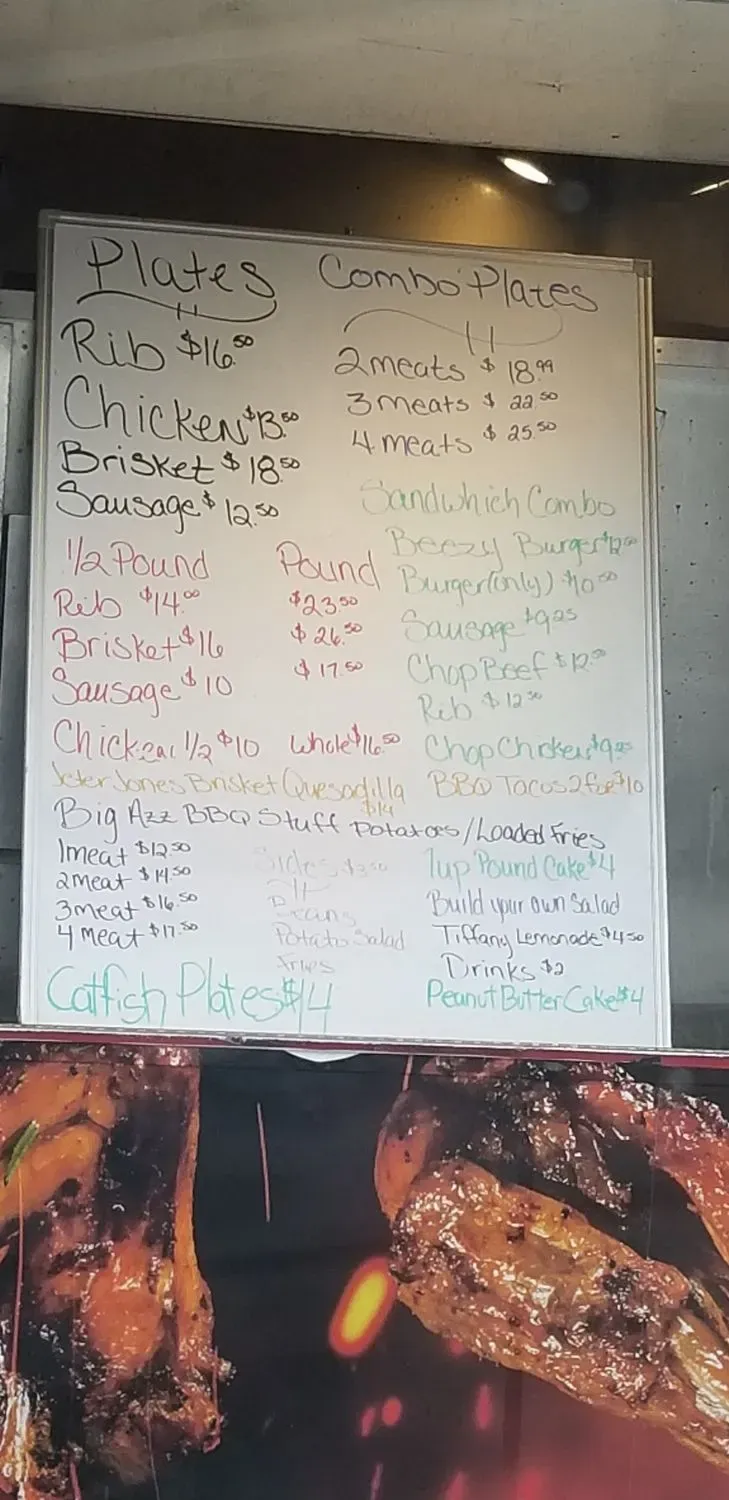 Plates
Rib $16.50
Chicken $13.50
Brisket $18.50
Sausage $12.50
Combo Plates
2 meats $18.99
3 meats $22.50
4 meats $25.50
1/2 Pound Pound
Rib $14.00 $23.50
Brisket $16 $26.50
Sausage $10 $17.50
Chicken 1/2 $10 Whole $16.50
Sandwhich Combo
Beezy Burger
Burger (only) $10.50
Sausage $9.25
Chop Beef
Rib $12.50
Chop Chicken
Jeter Jones Brisket Quesadilla
$14
BBQ Tacos 2 for $10
Big Azz BBQ Stuff Potatoes/Loaded Fries
1meat $12.50
2meat $14.50
3meat $16.50
4 meat $17.50
Sides $3.50
Beans
Potato Salad
Fries
1up Pound Cake $4
Build your own Salad
Tiffany Lemonade $4.50
Drinks $2
Peanut Butter Cake $4
Catfish Plates $14